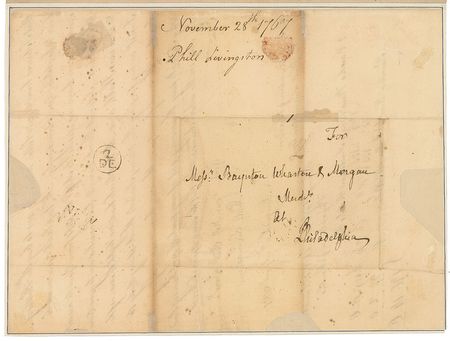 November 28th 1767
Phill Livingston
For
Messrs. Baynton Wharton & Morgan
Merchts.
At
Philadelphia
2
DE